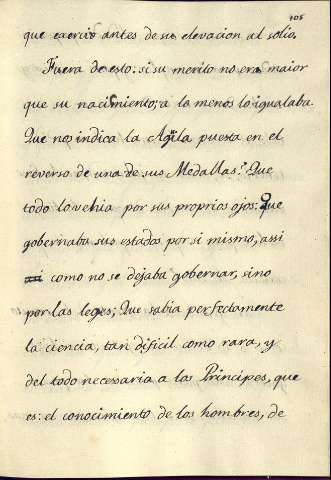 105
que exercio antes de su elevacion al solio.
Fuera de esto: si su merito no era maior
que su nacimiento; a lo menos lo igualaba.
Que nos indica la Agüila puesta en el
reverso de una de sus Medallas? Que
todo lo vehia por sus proprios ojos: Que
gobernaba sus estados por si mismo, assi
como no se dejaba gobernar, sino
por las leges; Que sabia perfectamente
la ciencia, tan dificil como rara, y
del todo necessaria a los Principes, que
es: el conocimiento de los hombres, de